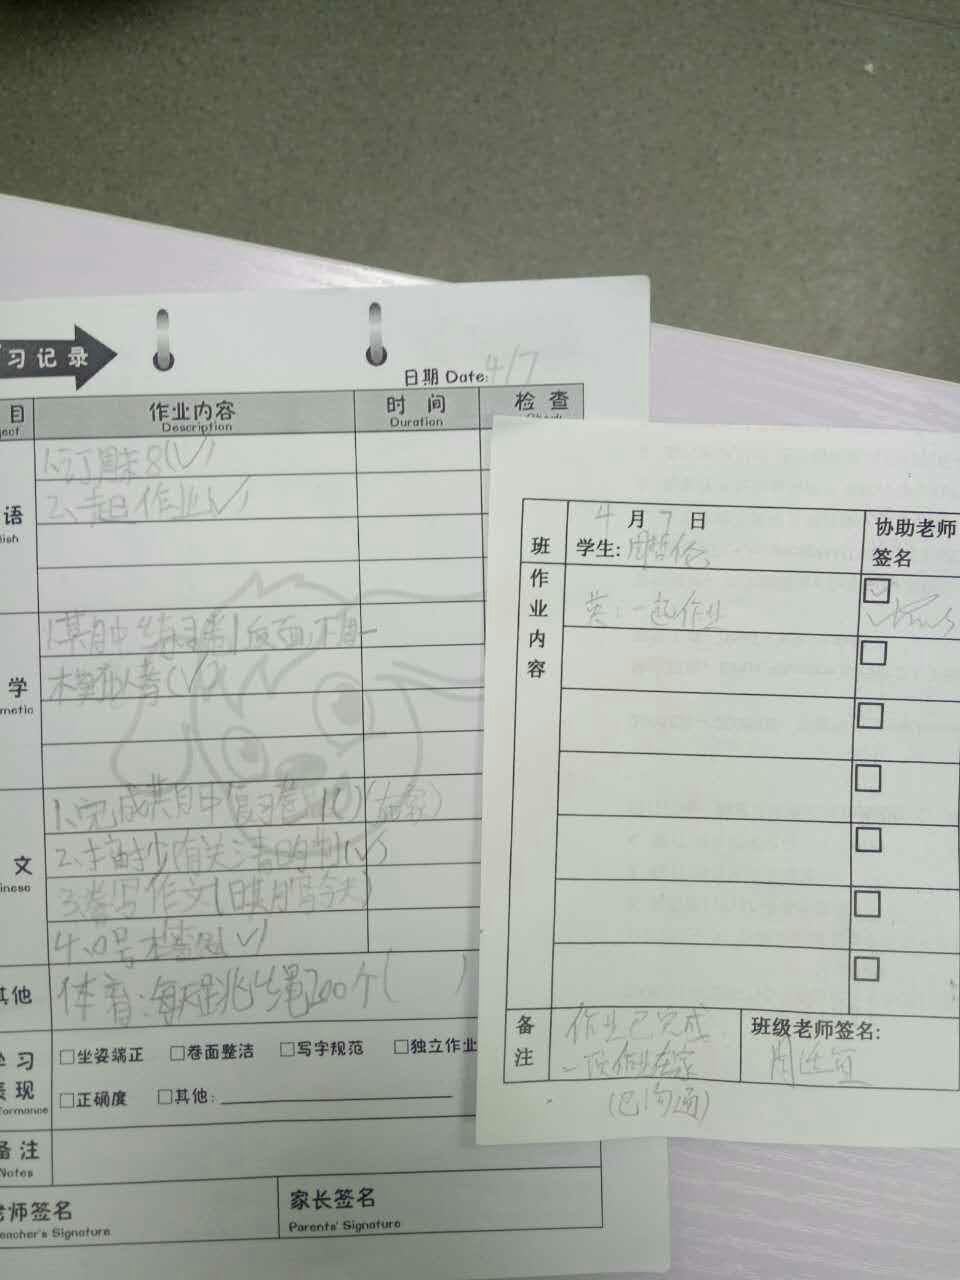 习记录
日期 Date: 4/7
目 作业内容 时间 检查
ject Description Duration
语
lish
1.订周末8(√)
2.一起作业(√)
学
metic
1.某月中练习卷1反面,下周一
文
inese
1.完成共月中复习卷 (在家)
2.摘抄有关清明的
3.誊写作文
4.0号本 (√)
其他
体育:每天跳绳200个( )
学习
表现
formance
□坐姿端正 □卷面整洁 □写字规范 □独立作业
□正确度 □其他:
备注
Notes
老师签名
eacher's Signature
家长签名
Parents' Signature
班
4月7日
学生:
协助老师
签名
作业内容
英:一起作业
备注
作业已完成
一项作业在家
(已沟通)
班级老师签名: